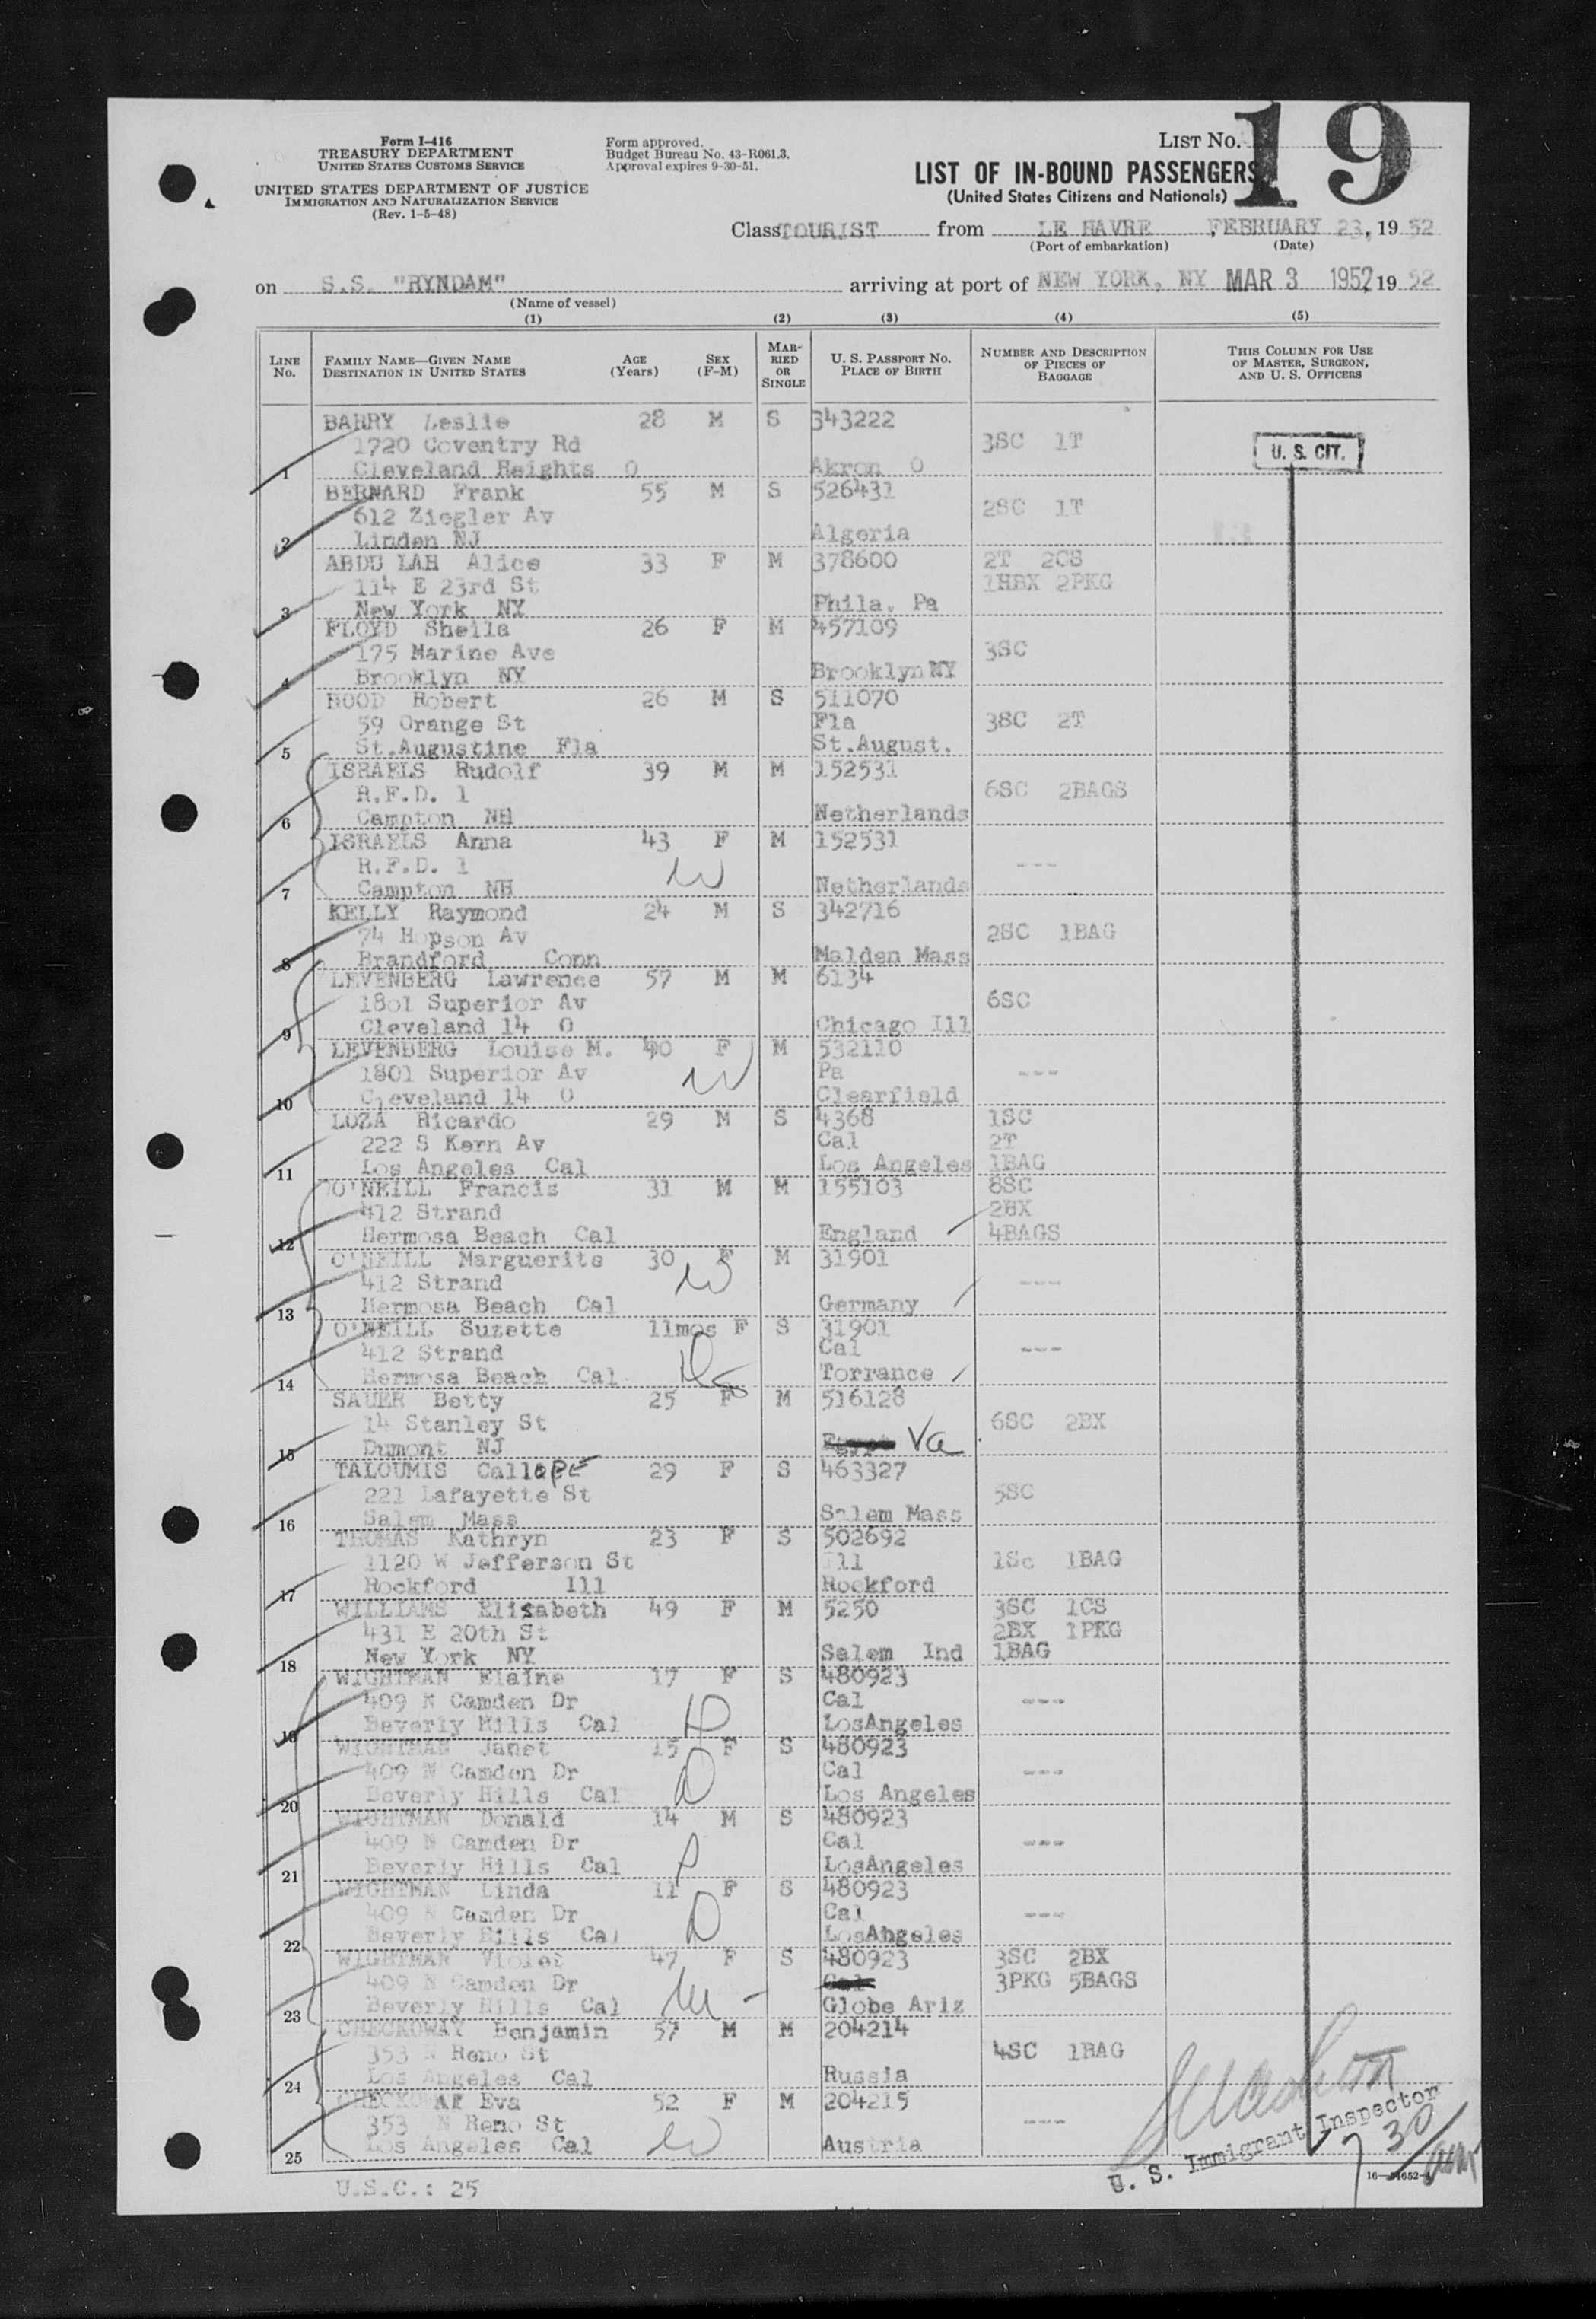 Form I-416
TREASURY DEPARTMENT
UNITED STATES CUSTOMS SERVICE
UNITED STATES DEPARTMENT OF JUSTICE
IMMIGRATION AND NATURALIZATION SERVICE
(Rev. 1-5-48)
Form approved.
Budget Bureau No. 43-R061.3.
Approval expires 9-30-51.
LIST NO. 19
LIST OF IN-BOUND PASSENGERS
(United States Citizens and Nationals)
Class TOURIST from LE HAVRE, FEBRUARY 23, 19 52
(Port of embarkation) (Date)
on S.S. "RYNDAM" arriving at port of NEW YORK, NY MAR 3 1952 19 52
(Name of vessel)
(1) (2) (3) (4) (5)
LINE No. FAMILY NAME—GIVEN NAME DESTINATION IN UNITED STATES AGE (Years) SEX (F-M) MARRIED OR SINGLE U. S. PASSPORT NO. PLACE OF BIRTH NUMBER AND DESCRIPTION OF PIECES OF BAGGAGE THIS COLUMN FOR USE OF MASTER, SURGEON, AND U. S. OFFICERS
BARRY Leslie 28 M S 343222
1720 Coventry Rd 3SC 1T U. S. CIT.
1 Cleveland Heights O Akron O
BERNARD Frank 55 M S 526431
612 Ziegler Av 2SC 1T
2 Linden NJ Algeria
ABDU LAH Alice 33 F M 378600 2T 2CS
114 E 23rd St 1HBX 2PKG
3 New York NY Phila. Pa
FLOYD Sheila 26 F M 457109
175 Marine Ave 3SC
4 Brooklyn NY Brooklyn NY
HOOD Robert 26 M S 511070
59 Orange St Fla 3SC 2T
5 St.Augustine Fla St.August.
ISRAELS Rudolf 39 M M 152531
R.F.D. 1 6SC 2BAGS
6 Campton NH Netherlands
ISRAELS Anna 43 F M 152531
R.F.D. 1 W ---
7 Campton NH Netherlands
KELLY Raymond 24 M S 342716
74 Hopson Av 2SC 1BAG
8 Brandford Conn Malden Mass
LEVENBERG Lawrence 57 M M 6134
1801 Superior Av 6SC
9 Cleveland 14 O Chicago Ill
LEVENBERG Louise M. 40 F M 532110
1801 Superior Av W Pa ---
10 Cleveland 14 O Clearfield
LOZA Ricardo 29 M S 4368 1SC
222 S Kern Av Cal 2T
11 Los Angeles Cal Los Angeles 1BAG
O'NEILL Francis 31 M M 155103 8SC
412 Strand 2BX
12 Hermosa Beach Cal England 4BAGS
O'NEILL Marguerite 30 F M 31901
412 Strand W ---
13 Hermosa Beach Cal Germany
O'NEILL Suzette 11mos F S 31901
412 Strand Cal ---
14 Hermosa Beach Cal Torrance
SAUER Betty 25 F M 516128
14 Stanley St 6SC 2BX
15 Dumont NJ Va
TALOUMIS Calliope 29 F S 463327
221 Lafayette St 5SC
16 Salem Mass Salem Mass
THOMAS Kathryn 23 F S 502692
1120 W Jefferson St Ill 1Sc 1BAG
17 Rockford Ill Rockford
WILLIAMS Elisabeth 49 F M 5250 3SC 1CS
431 E 20th St 2BX 1PKG
18 New York NY Salem Ind 1BAG
WIGHTMAN Elaine 17 F S 480923
409 N Camden Dr D Cal ---
19 Beverly Hills Cal LosAngeles
WIGHTMAN Janet 15 F S 480923
409 N Camden Dr D Cal ---
20 Beverly Hills Cal Los Angeles
WIGHTMAN Donald 14 M S 480923
409 N Camden Dr Cal ---
21 Beverly Hills Cal LosAngeles
WIGHTMAN Linda 11 F S 480923
409 N Camden Dr D Cal ---
22 Beverly Hills Cal LosAngeles
WIGHTMAN Violet 47 F S 480923 3SC 2BX
409 N Camden Dr Cal 3PKG 5BAGS
23 Beverly Hills Cal Globe Ariz
CHECKOWAY Benjamin 57 M M 204214
353 N Reno St 4SC 1BAG
24 Los Angeles Cal Russia
Eva 52 F M 204215
353 N Reno St W ---
25 Los Angeles Cal Austria
U. S. Immigrant Inspector
7 30
U.S.C.: 25